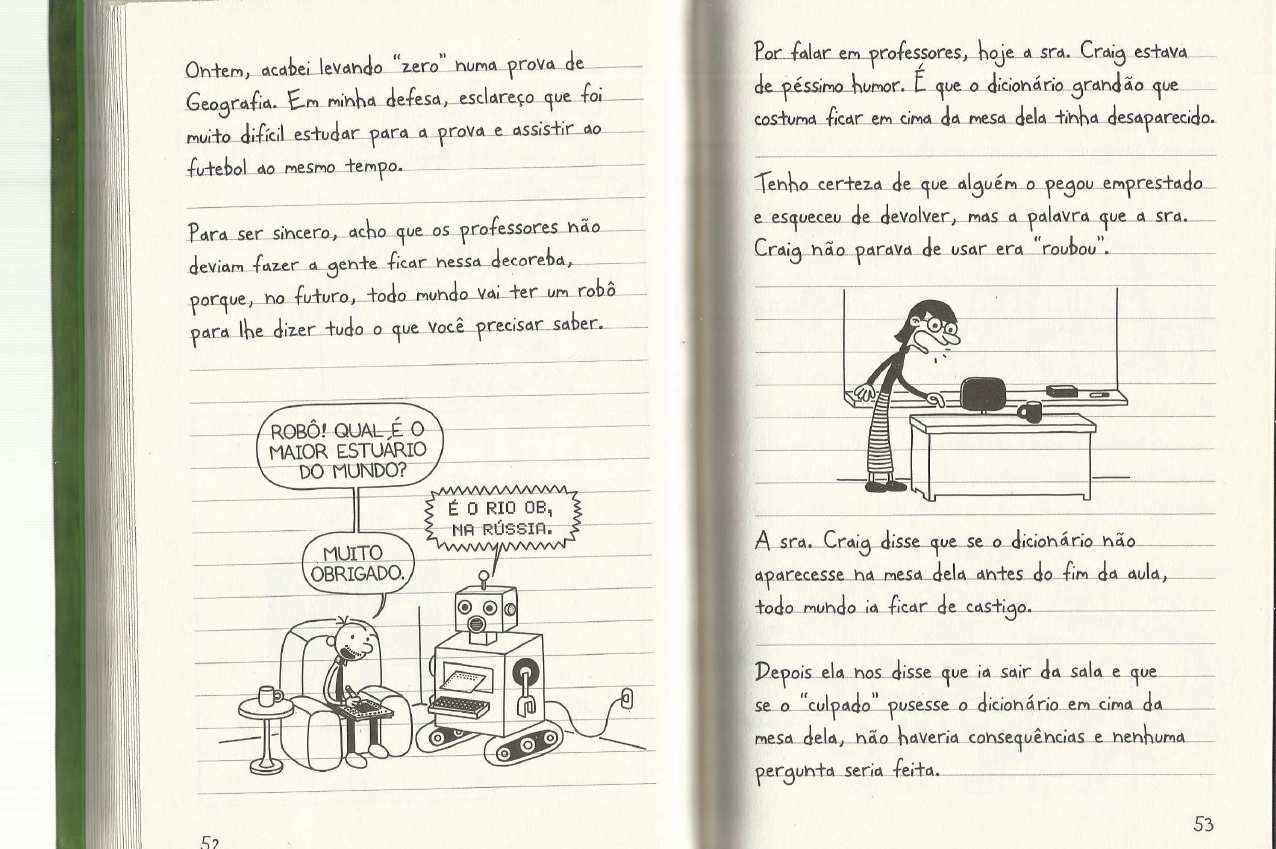 Ontem, acabei levando "zero" numa prova de
Geografia. Em minha defesa, esclareço que foi
muito difícil estudar para a prova e assistir ao
futebol ao mesmo tempo.
Para ser sincero, acho que os professores não
deviam fazer a gente ficar nessa decoreba,
porque, no futuro, todo mundo vai ter um robô
para lhe dizer tudo o que você precisar saber.
ROBÔ! QUAL É O
MAIOR ESTUÁRIO
DO MUNDO?
É O RIO OB,
NA RÚSSIA.
MUITO
OBRIGADO.
52
Por falar em professores, hoje a sra. Craig estava
de péssimo humor. É que o dicionário grandão que
costuma ficar em cima da mesa dela tinha desaparecido.
Tenho certeza de que alguém o pegou emprestado
e esqueceu de devolver, mas a palavra que a sra.
Craig não parava de usar era "roubou".
A sra. Craig disse que se o dicionário não
aparecesse na mesa dela antes do fim da aula,
todo mundo ia ficar de castigo.
Depois ela nos disse que ia sair da sala e que
se o "culpado" pusesse o dicionário em cima da
mesa dela, não haveria consequências e nenhuma
pergunta seria feita.
53